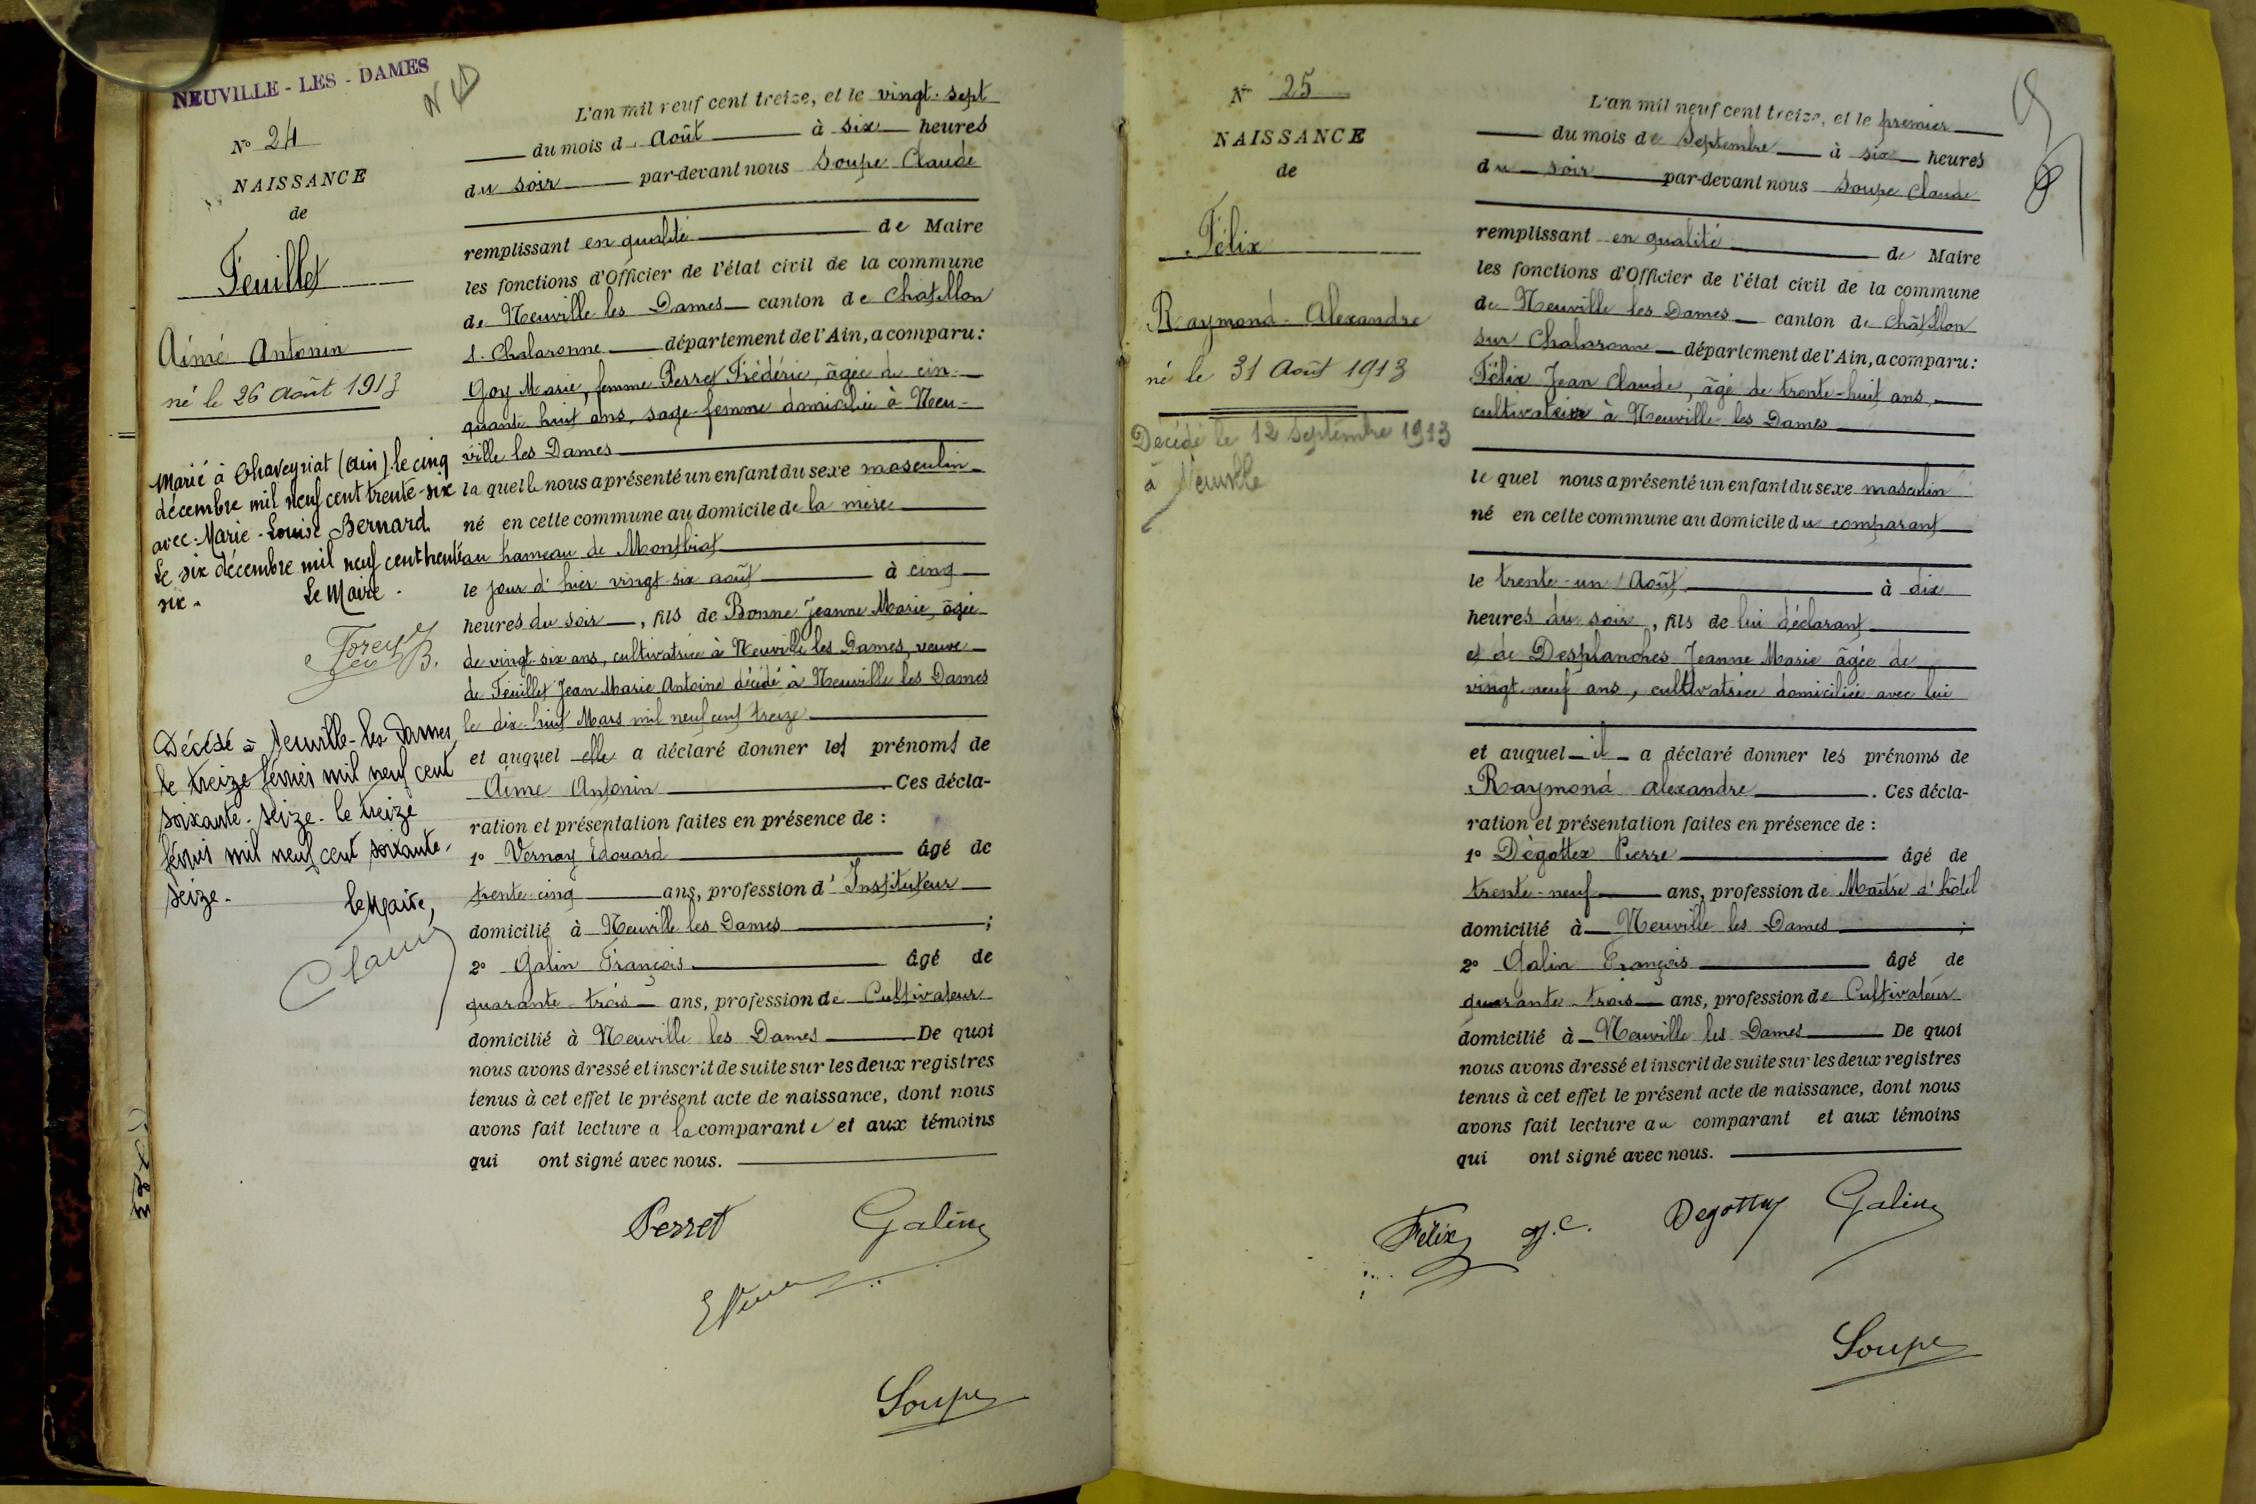 NEUVILLE - LES - DAMES
N° 24
NAISSANCE
de
Feuillet
Aimé Antonin
né le 26 Août 1913
Marié à Chaveyriat (Ain) le cinq
décembre mil neuf cent trente-six
avec Marie-Louise Bernard
Le six décembre mil neuf cent trente
six.
Le Maire.
Décédé à Neuville-les-Dames
le treize février mil neuf cent
soixante-seize. le treize
février mil neuf cent soixante-
seize.
le Maire,
L'an mil neuf cent treize, et le vingt-sept
du mois d Août à six heures
du soir par-devant nous Soupe Claude
remplissant en qualité de Maire
les fonctions d'Officier de l'état civil de la commune
de Neuville les Dames canton de Châtillon
s. Chalaronne département de l'Ain, a comparu:
Goy Marie, femme Perret Frédéric, âgée de cin-
quante huit ans, sage-femme domiciliée à Neu-
ville les Dames
la quelle nous a présenté un enfant du sexe masculin
né en cette commune au domicile de la mère
au hameau de Montbiat
le jour d'hier vingt-six août à cinq
heures du soir, fils de Bonne Jeanne Marie, âgée
de vingt-six ans, cultivatrice à Neuville les Dames, veuve
de Feuillet Jean Marie Antoine décédé à Neuville les Dames
le dix-huit Mars mil neuf cent treize
et auquel elle a déclaré donner les prénoms de
Aimé Antonin Ces décla-
ration et présentation faites en présence de :
1° Vernay Édouard âgé de
trente-cinq ans, profession d'Instituteur
domicilié à Neuville les Dames ;
2° Galin François âgé de
quarante-trois ans, profession de Cultivateur
domicilié à Neuville les Dames De quoi
nous avons dressé et inscrit de suite sur les deux registres
tenus à cet effet le présent acte de naissance, dont nous
avons fait lecture a la comparante et aux témoins
qui ont signé avec nous.
Perret Galin
Soupe
N° 25
NAISSANCE
de
Félix
Raymond Alexandre
né le 31 Août 1913
Décédé le 12 Septembre 1913
à Neuville
L'an mil neuf cent treize, et le premier
du mois de Septembre à six heures
du soir par-devant nous Soupe Claude
remplissant en qualité de Maire
les fonctions d'Officier de l'état civil de la commune
de Neuville les Dames canton de Châtillon
sur Chalaronne département de l'Ain, a comparu:
Félix Jean Claude, âgé de trente-huit ans,
cultivateur à Neuville les Dames
le quel nous a présenté un enfant du sexe masculin
né en cette commune au domicile du comparant
le trente-un Août à dix
heures du soir, fils de lui déclarant
et de Desplanches Jeanne Marie âgée de
vingt-neuf ans, cultivatrice domiciliée avec lui
et auquel il a déclaré donner les prénoms de
Raymond Alexandre. Ces décla-
ration et présentation faites en présence de :
1° Dégottex Pierre âgé de
trente-neuf ans, profession de Maître d'hôtel
domicilié à Neuville les Dames ;
2° Galin François âgé de
quarante-trois ans, profession de Cultivateur
domicilié à Neuville les Dames De quoi
nous avons dressé et inscrit de suite sur les deux registres
tenus à cet effet le présent acte de naissance, dont nous
avons fait lecture au comparant et aux témoins
qui ont signé avec nous.
Félix J.C. Degottex Galin
Soupe